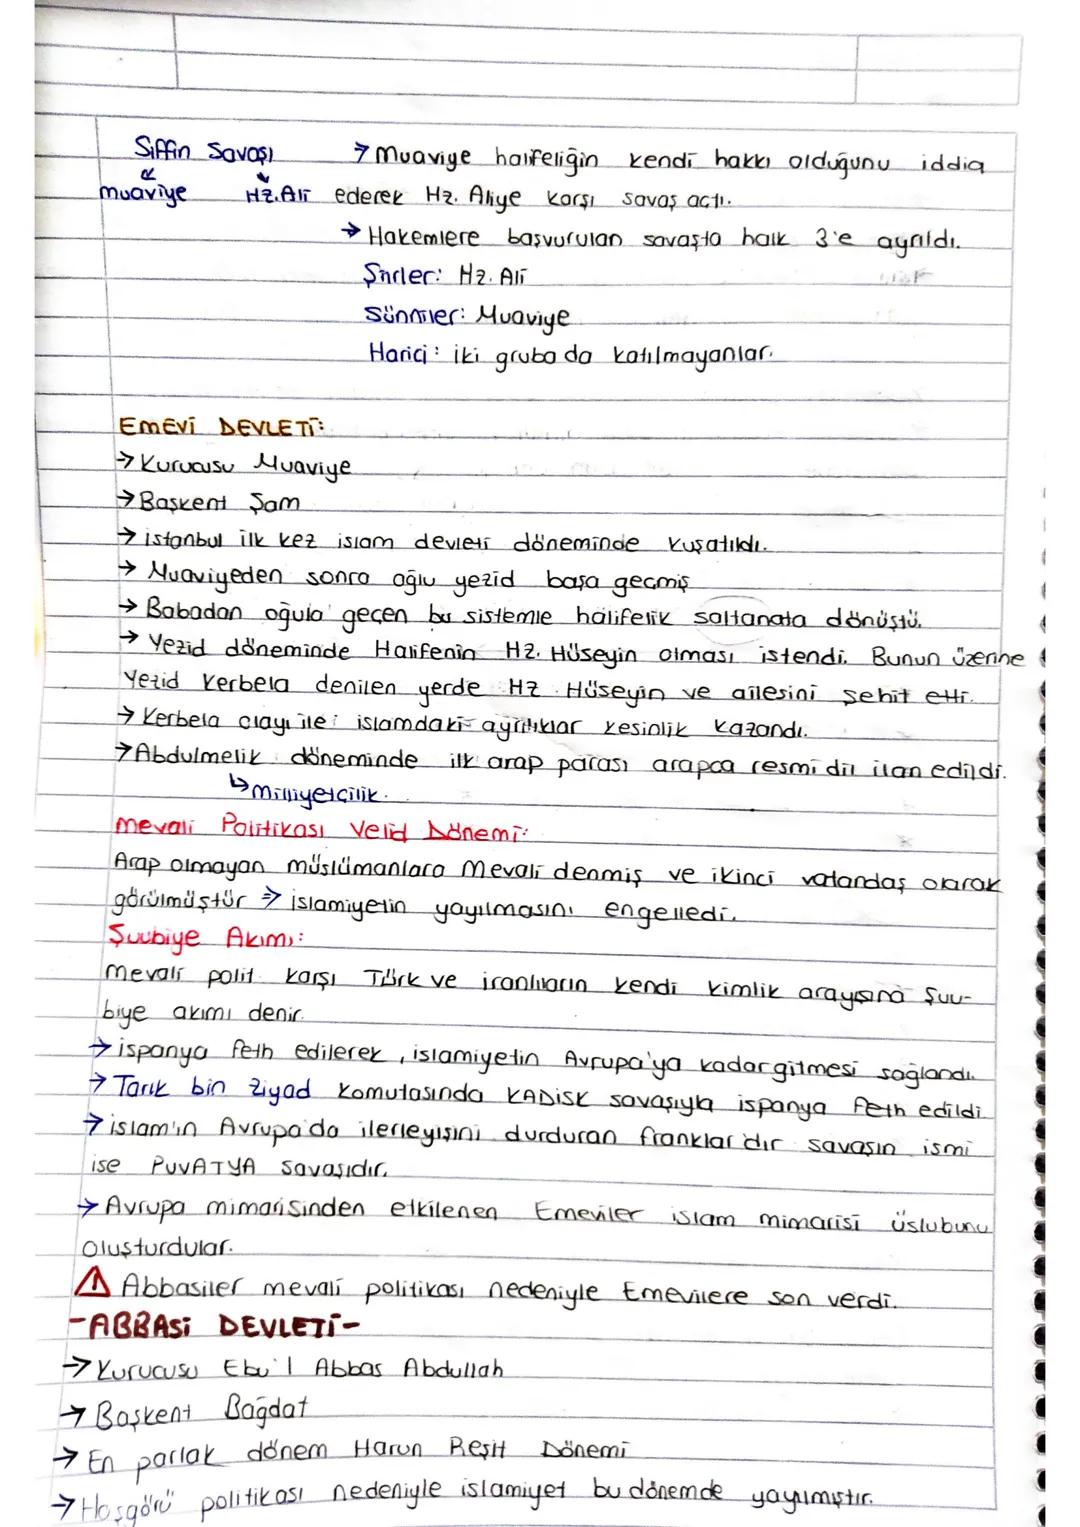 Siffin Savaşı → Muaviye halifeliğin kendi hakkı olduğunu iddia
muaviye Hz. Ali ederek Hz. Aliye karşı savaş açtı.
→ Hakemlere başvurulan savaşta halk 3'e ayrıldı.
Şiiler: Hz. Ali
Sünniler: Muaviye
Harici: iki gruba da katılmayanlar.
EMEVİ DEVLETİ:
→ Kurucusu Muaviye
→ Başkent Şam
→ istanbul ilk kez islam devleti döneminde kuşatıldı.
→ Muaviyeden sonra oğlu yezid başa geçmiş
→ Babadan oğula geçen bu sistemle halifelik saltanata dönüştü.
→ Yezid döneminde Halifenin Hz. Hüseyin olması istendi. Bunun üzerine
Yezid Kerbela denilen yerde Hz Hüseyin ve ailesini şehit etti.
→ Kerbela olayı ile islamdaki ayrılıklar kesinlik kazandı.
→ Abdulmelik döneminde ilk arap parası arapca resmi dil ilan edildi.
↳ Milliyetçilik.
Mevali Politikası Velid Dönemi:
Arap olmayan müslümanlara Mevali denmiş ve ikinci vatandaş olarak
görülmüştür ⇒ islamiyetin yayılmasını engelledi.
Şuubiye Akımı:
Mevali polit. karşı Türk ve iranlıların kendi kimlik arayışına Şuu-
biye akımı denir.
→ ispanya feth edilerek, islamiyetin Avrupa'ya kadar gitmesi sağlandı.
→ Tarık bin Ziyad komutasında KADİSK savaşıyla ispanya feth edildi
→ islam'ın Avrupa'da ilerleyişini durduran franklar'dır savaşın ismi
ise PUVATYA savaşıdır.
→ Avrupa mimarisinden etkilenen Emeviler islam mimarisi üslubunu
oluşturdular.
⚠ Abbasiler mevali politikası nedeniyle Emevilere son verdi.
- ABBASİ DEVLETİ -
→ Kurucusu Ebu'l Abbas Abdullah
→ Başkent Bağdat
→ En parlak dönem Harun Reşit Dönemi
→ Hoşgörü politikası nedeniyle islamiyet bu dönemde yayılmıştır.